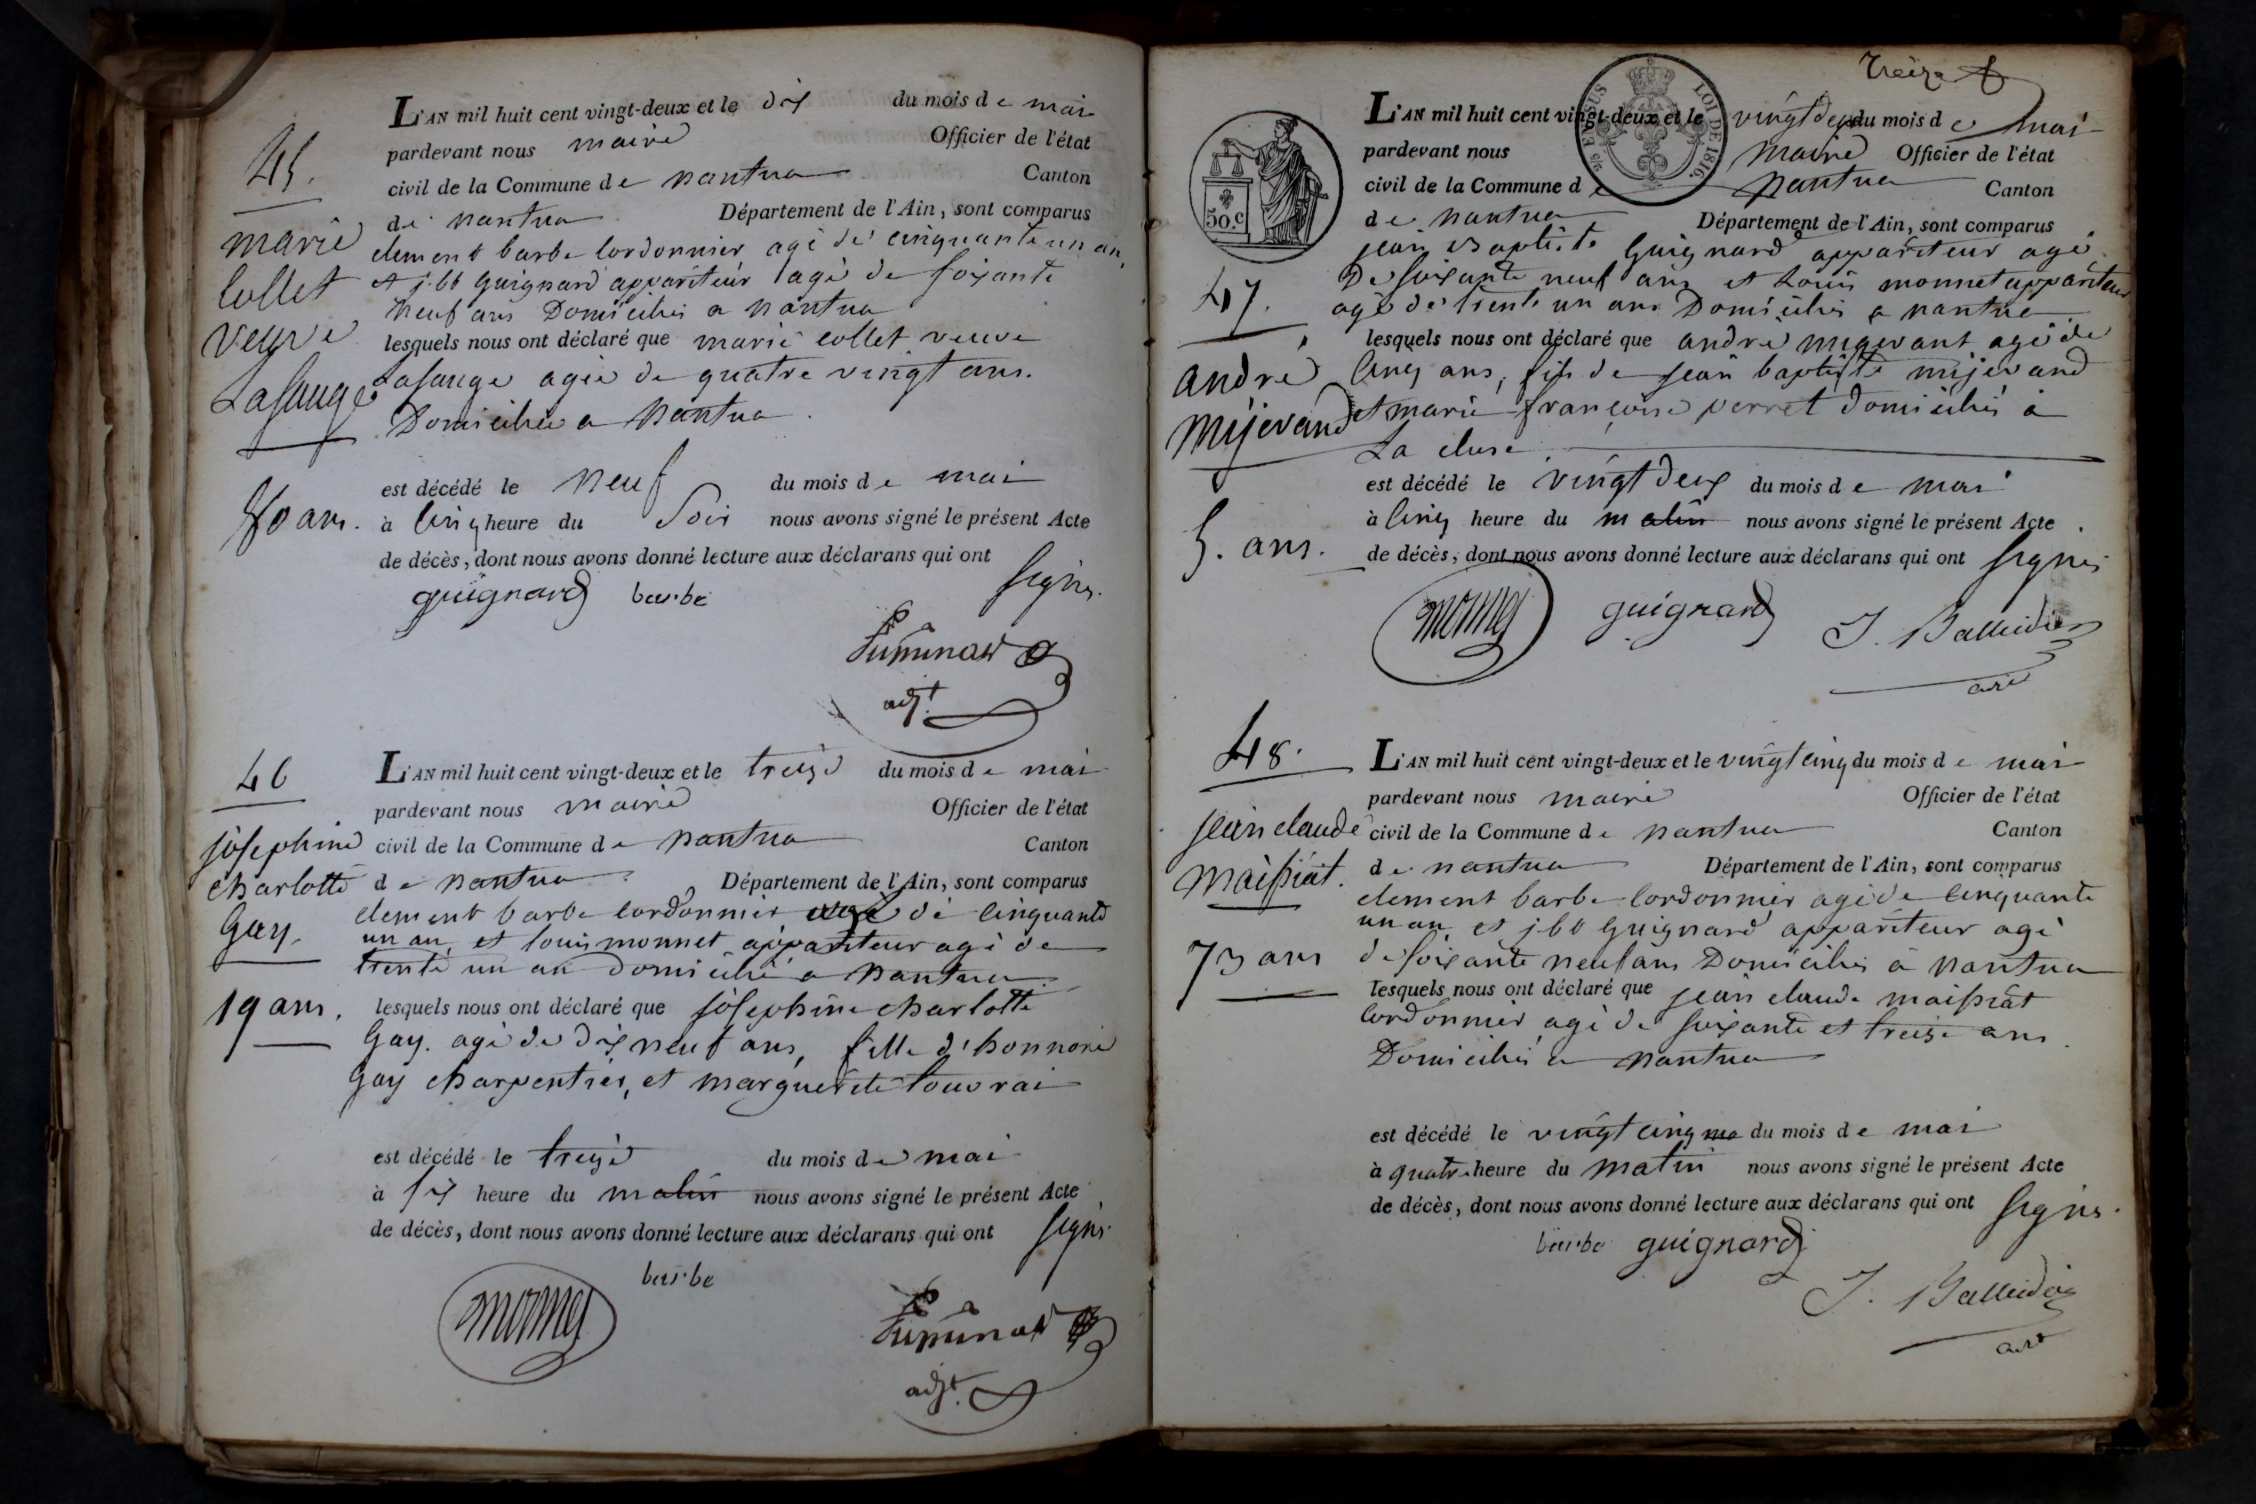 45.
marie
Collet
veuve
Lasauge
80 ans.
L'AN mil huit cent vingt-deux et le dix du mois de mai
pardevant nous maire Officier de l'état
civil de la Commune de nantua Canton
de nantua Département de l'Ain, sont comparus
clement barbe Cordonnier agé de cinquante un an,
et j.bt guignard appariteur agé de soixante
neuf ans Domiciliés a nantua
lesquels nous ont déclaré que marie collet veuve
Lasauge agée de quatre vingt ans.
Domiciliée a Nantua.
est décédé le neuf du mois de mai
à Cinq heure du Soir nous avons signé le présent Acte
de décès, dont nous avons donné lecture aux déclarans qui ont signés.
guignard barbe
adjt.
46
josephine
charlotte
Gay.
19 ans.
L'AN mil huit cent vingt-deux et le treize du mois de mai
pardevant nous maire Officier de l'état
civil de la Commune de nantua Canton
de nantua Département de l'Ain, sont comparus
clement barbe Cordonnier agé de Cinquante
un an, et louis monnet appariteur agé de
trente un an domicilié a nantua
lesquels nous ont déclaré que josephine charlotte
Gay. agé de dix neuf ans, fille d'honnoré
Gay charpentier, et marguerite Touvrai
est décédé le treize du mois de mai
à six heure du matin nous avons signé le présent Acte
de décès, dont nous avons donné lecture aux déclarans qui ont signés
barbe
monnet
adjt.
treize
50 C
LOI DE 1816.
47.
andré
Mijevand
5. ans.
L'AN mil huit cent vingt-deux et le vingt deux du mois de mai
pardevant nous maire Officier de l'état
civil de la Commune de nantua Canton
de nantua Département de l'Ain, sont comparus
jean Baptiste Guignard appariteur agé
De soixante neuf ans et Louis monnet appariteur
agé de trente un ans Domiciliés a nantua
lesquels nous ont déclaré que andré migevant agé de
Cinq ans, fils de jean baptiste mijevand
et marie françoise perret domiciliés à
La cluse
est décédé le vingt deux du mois de mai
à Cinq heure du matin nous avons signé le présent Acte
de décès, dont nous avons donné lecture aux déclarans qui ont signés
monnet guignard
48.
jean claude
Maissiat.
73 ans
L'AN mil huit cent vingt-deux et le vingt cinq du mois de mai
pardevant nous maire Officier de l'état
civil de la Commune de nantua Canton
de nantua Département de l'Ain, sont comparus
clement barbe Cordonnier agé de Cinquante
un an et j.bt Guignard appariteur agé
de soixante neuf ans Domiciliés à nantua
lesquels nous ont déclaré que jean claude maissiat
Cordonnier agé de soixante et treize ans
Domiciliés a nantua
est décédé le vingt cinq du mois de mai
à quatre heure du matin nous avons signé le présent Acte
de décès, dont nous avons donné lecture aux déclarans qui ont signés.
barbe guignard